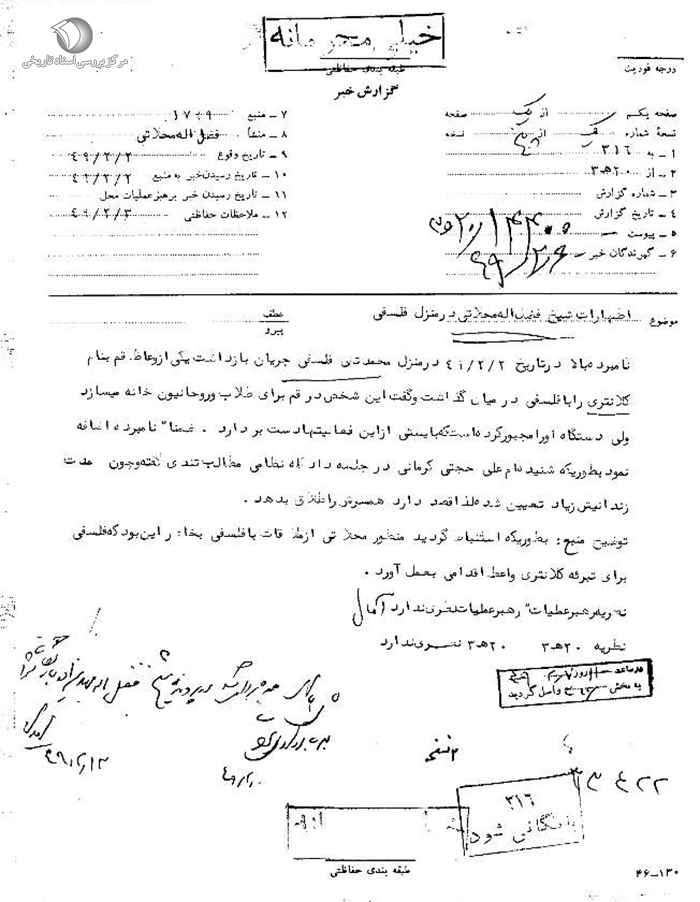 خیلی محرمانه
مرکز بررسی اسناد تاریخی
طبقه بندی حفاظتی
درجه فوریت
گزارش خبر
صفحه یکم از یک صفحه
نسخه شماره یک از پنج نسخه
۱ – به ۳۱۶
۲ – از ۲۰ هـ ۳
۳ – شماره گزارش
۴ – تاریخ گزارش
۵ – پیوست
۶ – گیرندگان خبر
۷ – منبع ۱۷۰۹
۸ – منشأ فضل اله محلاتی
۹ – تاریخ وقوع ۴۹/۲/۲
۱۰ – تاریخ رسیدن خبر به منبع ۴۹/۲/۲
۱۱ – تاریخ رسیدن خبر برهبر عملیات محل
۱۲ – ملاحظات حفاظتی ۴۹/۲/۳
موضوع اظهارات شیخ فضل اله محلاتی در منزل فلسفی
عطف
پیرو
نامبرده بالا در تاریخ ۴۹/۲/۲ در منزل محمدتقی فلسفی جریان بازداشت یکی از وعاظ قم بنام
کلانتری را با فلسفی در میان گذاشت و گفت این شخص در قم برای طلاب و روحانیون خانه میسازد
ولی دستگاه او را مجبور کرده است که بایستی از این فعالیتها دست بردارد . ضمنا" نامبرده اضافه
نمود بطوریکه شنیده ام علی حجتی کرمانی در جلسه دادگاه نظامی مطالب تندی گفته و چون مدت
زندانیش زیاد تعیین شده لذا قصد دارد همسرش را طلاق بدهد .
توضیح منبع : بطوریکه استنباط گردید منظور محلاتی از ملاقات با فلسفی بخاطر این بود که فلسفی
برای تبرئه کلانتری واعظ اقدامی بعمل آورد .
نظریه رهبر عملیات" رهبر عملیات نظری ندارد
نظریه ۲۰ هـ ۳ ۲۰ هـ ۳ نظری ندارد
در ساعت روز
به بخش واصل گردید
۲ نسخه
۳۳۴۲۲
۳۱۶
بایگانی شود
طبقه بندی حفاظتی
۴۶–۱۳۰